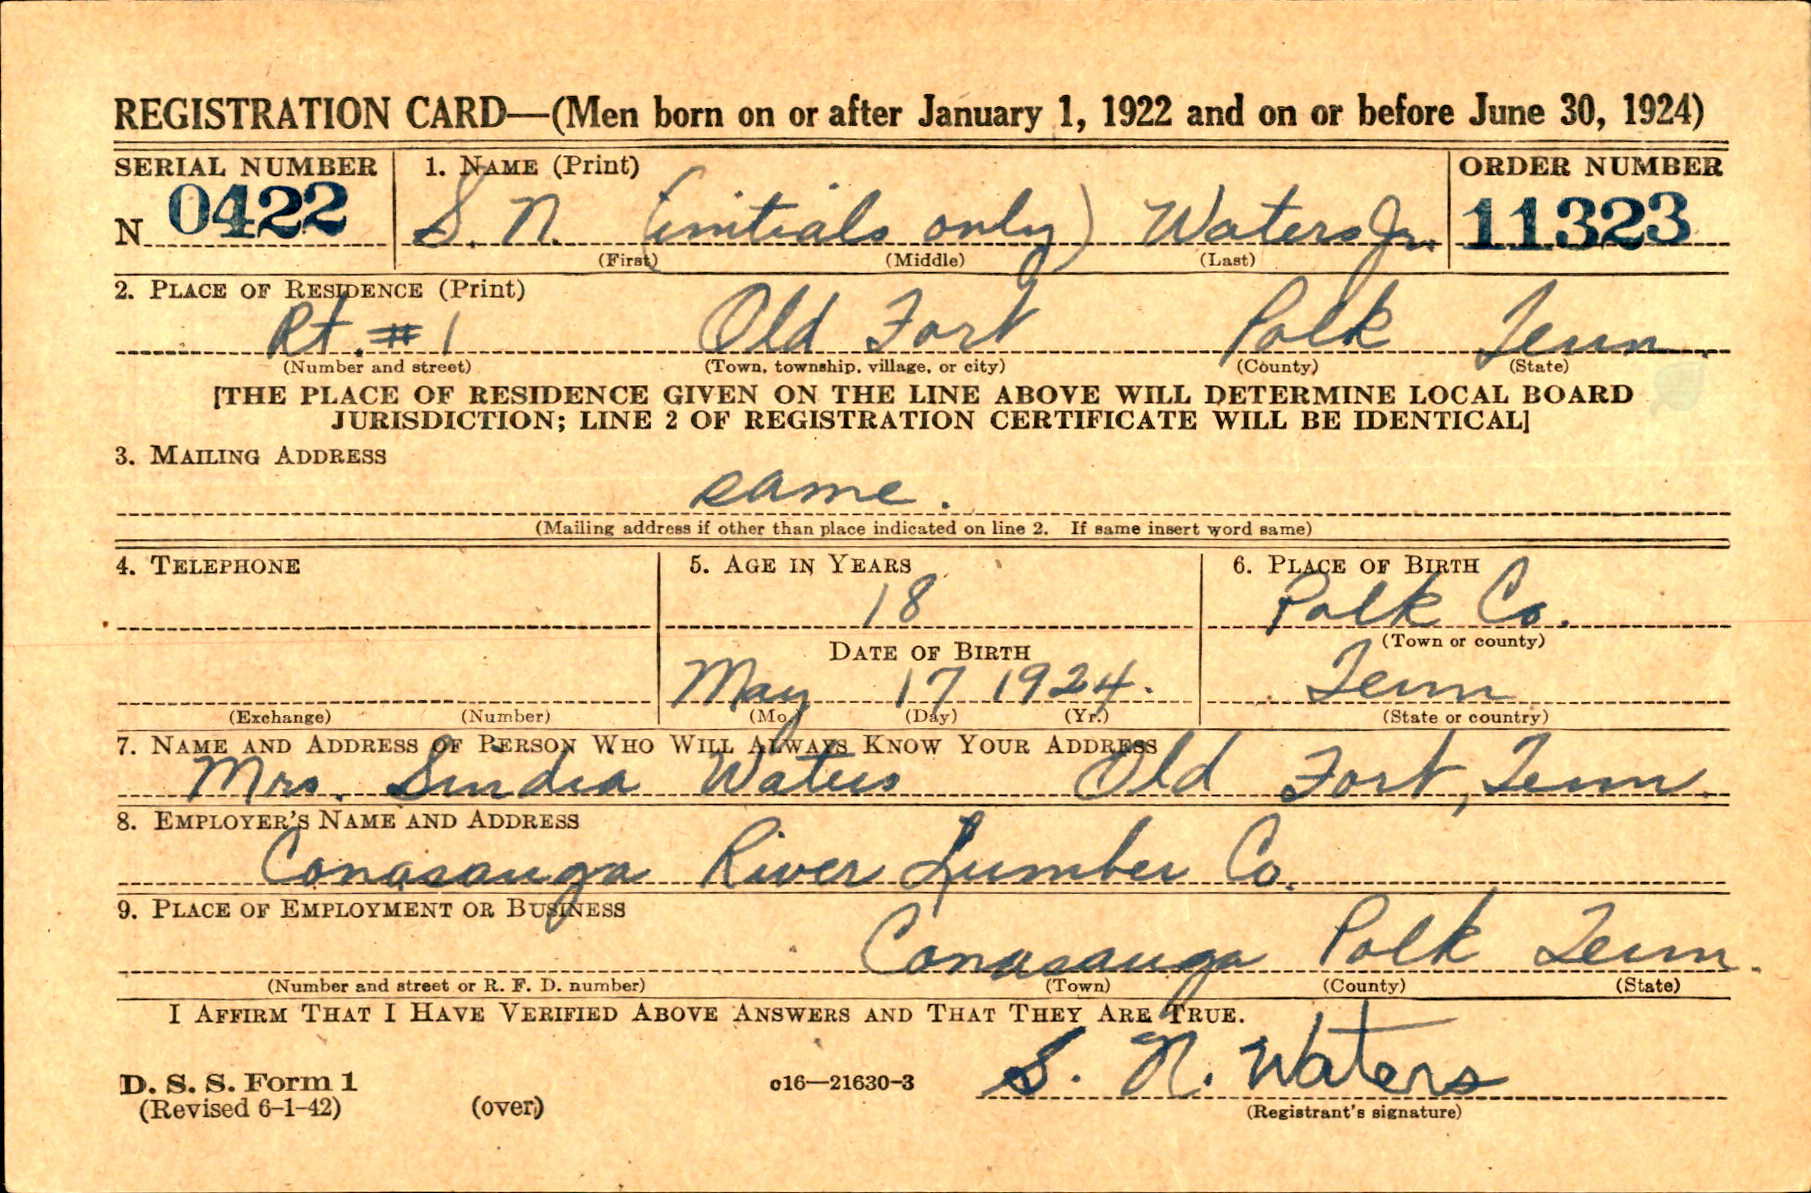 REGISTRATION CARD—(Men born on or after January 1, 1922 and on or before June 30, 1924)
SERIAL NUMBER 1. NAME (Print) ORDER NUMBER
N 0422 S. N. (initials only) Waters Jr. 11323
(First) (Middle) (Last)
2. PLACE OF RESIDENCE (Print)
Rt. # 1 Old Fort Polk Tenn.
(Number and street) (Town, township, village, or city) (County) (State)
[THE PLACE OF RESIDENCE GIVEN ON THE LINE ABOVE WILL DETERMINE LOCAL BOARD
JURISDICTION; LINE 2 OF REGISTRATION CERTIFICATE WILL BE IDENTICAL]
3. MAILING ADDRESS
same.
(Mailing address if other than place indicated on line 2. If same insert word same)
4. TELEPHONE 5. AGE IN YEARS 6. PLACE OF BIRTH
18 Polk Co.
(Town or county)
DATE OF BIRTH
May 17 1924. Tenn
(Exchange) (Number) (Mo.) (Day) (Yr.) (State or country)
7. NAME AND ADDRESS OF PERSON WHO WILL ALWAYS KNOW YOUR ADDRESS
Mrs. Sindia Waters Old Fort, Tenn.
8. EMPLOYER'S NAME AND ADDRESS
Conasauga River Lumber Co.
9. PLACE OF EMPLOYMENT OR BUSINESS
Conasauga Polk Tenn.
(Number and street or R. F. D. number) (Town) (County) (State)
I AFFIRM THAT I HAVE VERIFIED ABOVE ANSWERS AND THAT THEY ARE TRUE.
D. S. S. Form 1 c16—21630-3 S. N. Waters
(Revised 6-1-42) (over) (Registrant's signature)